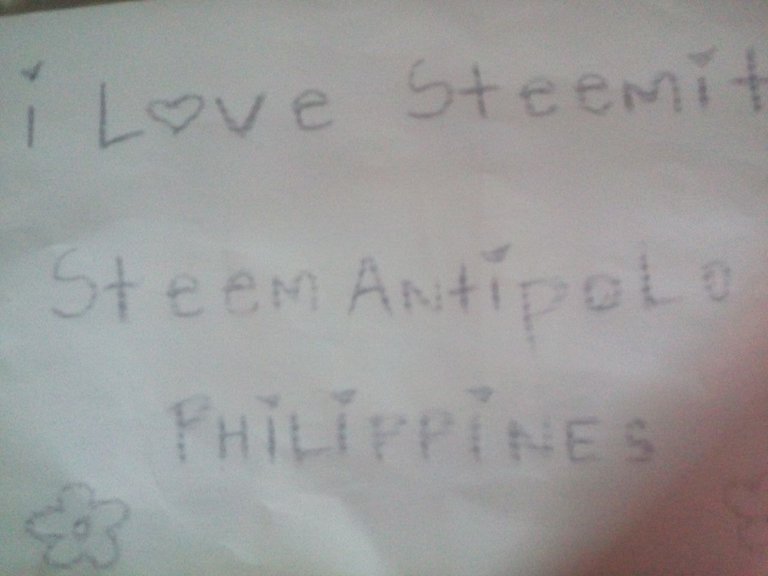 i Love Steemit
Steem Antipolo
PHiLiPPiNES